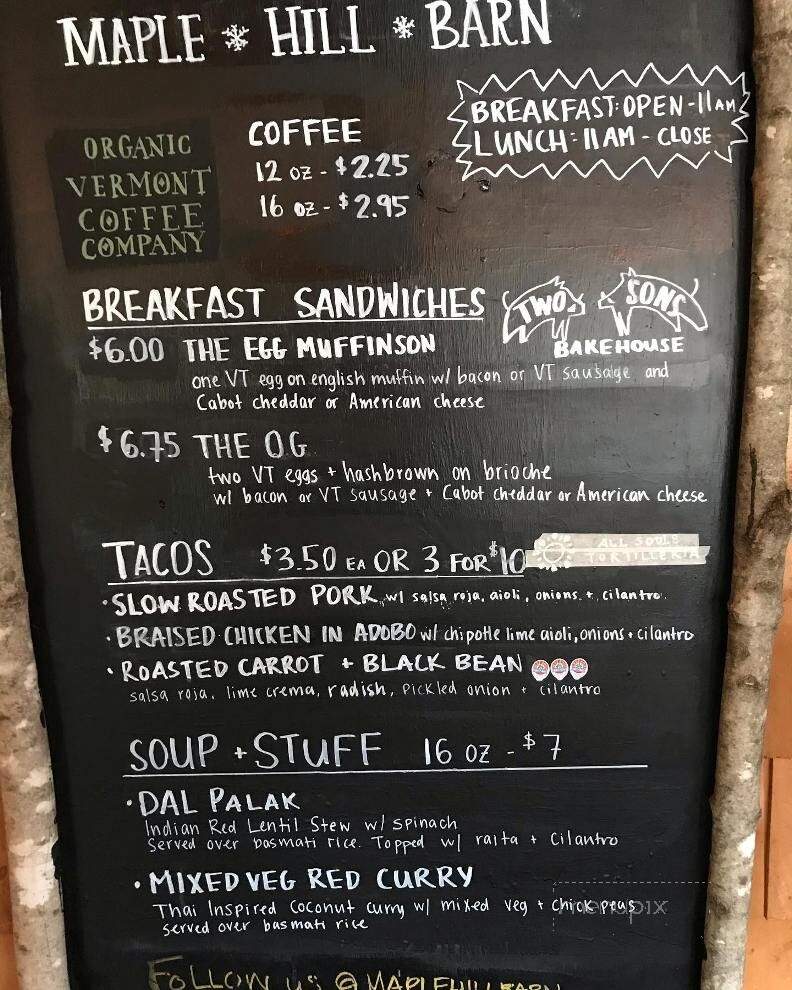 MAPLE * HILL * BARN
BREAKFAST: OPEN - 11 AM
LUNCH: 11 AM - CLOSE
ORGANIC
VERMONT
COFFEE
COMPANY
COFFEE
12 oz - $2.25
16 oz - $2.95
BREAKFAST SANDWICHES
TWO SONS
BAKEHOUSE
$6.00 THE EGG MUFFINSON
one VT egg on english muffin w/ bacon or VT sausage and
Cabot cheddar or American cheese
$6.75 THE OG
two VT eggs + hashbrown on brioche
w/ bacon or VT sausage + Cabot cheddar or American cheese
TACOS $3.50 EA OR 3 FOR $10
ALL SOULS
TORTILLERIA
• SLOW ROASTED PORK w/ salsa roja, aioli, onions + cilantro.
• BRAISED CHICKEN IN ADOBO w/ chipotle lime aioli, onions + cilantro
• ROASTED CARROT + BLACK BEAN
salsa roja, lime crema, radish, pickled onion + cilantro
SOUP + STUFF 16 OZ - $7
• DAL PALAK
Indian Red Lentil Stew w/ spinach
Served over basmati rice. Topped w/ raita + cilantro
• MIXED VEG RED CURRY
Thai Inspired Coconut curry w/ mixed veg + chick peas
served over basmati rice
menupix
FOLLOW US @ MAPLEHILLBARN